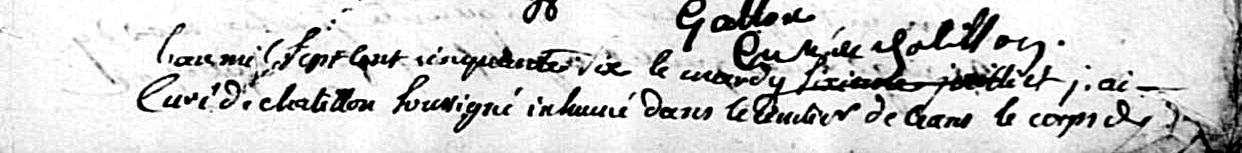 Gallon
Curé de Chatillon.
L'an mil sept cent cinquante six le mardy sixieme juillet j'ai
Curé de chatillon soussigné inhumé dans le cimetier de ceans le corps de